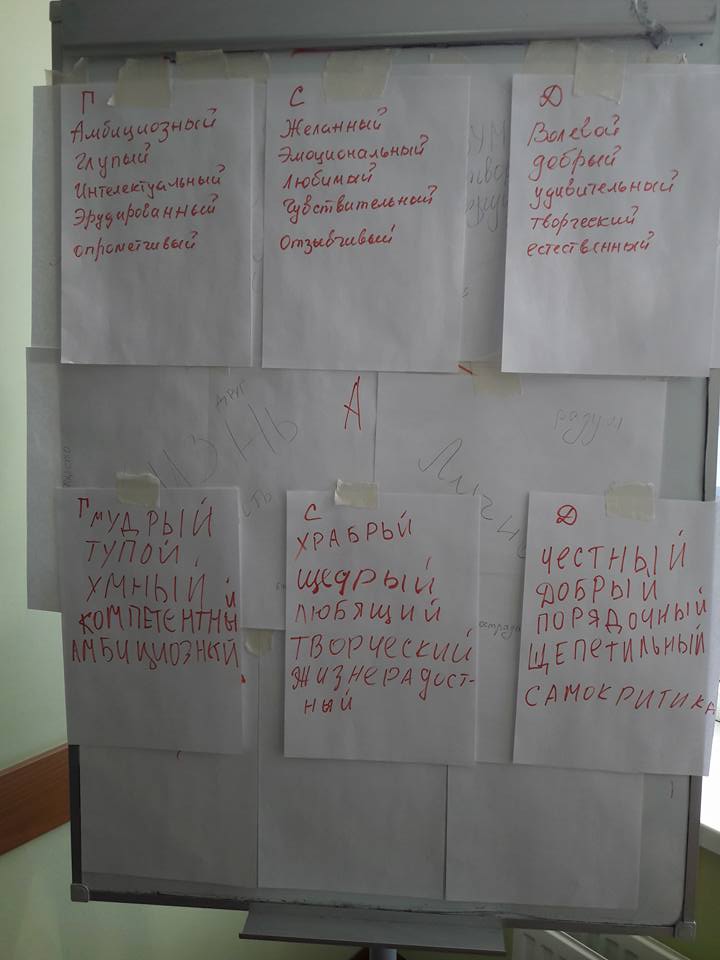 Г
Амбициозный
Глупый
Интелектуальный
Эрудированный
опрометчивый
С
Желанный
Эмоциональный
Любимый
Чувствительный
Отзывчивый
Д
Волевой
добрый
удивительный
творческий
естественный
А
разум
Г
МУДРЫЙ
ТУПОЙ
УМНЫЙ
КОМПЕТЕНТНЫЙ
АМБИЦИОЗНЫЙ
С
ХРАБРЫЙ
ЩЕДРЫЙ
ЛЮБЯЩИЙ
ТВОРЧЕСКИЙ
ЖИЗНЕРАДОСТ-
НЫЙ
Д
ЧЕСТНЫЙ
ДОБРЫЙ
ПОРЯДОЧНЫЙ
ЩЕПЕТИЛЬНЫЙ
САМОКРИТИКА